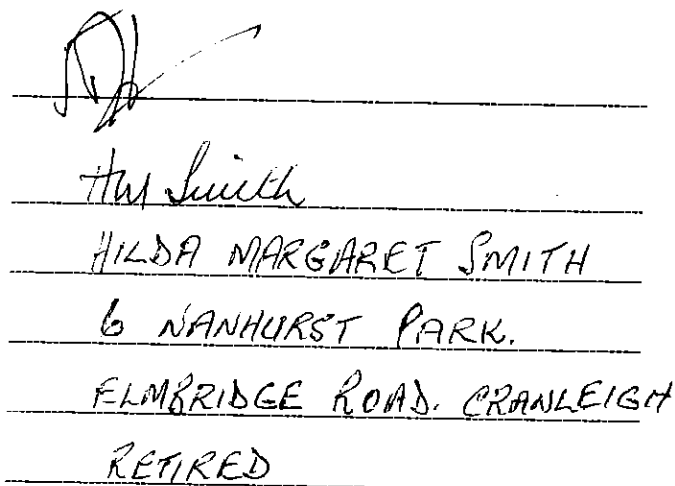 HM Smith
HILDA MARGARET SMITH
6 NANHURST PARK.
ELMBRIDGE ROAD. CRANLEIGH
RETIRED